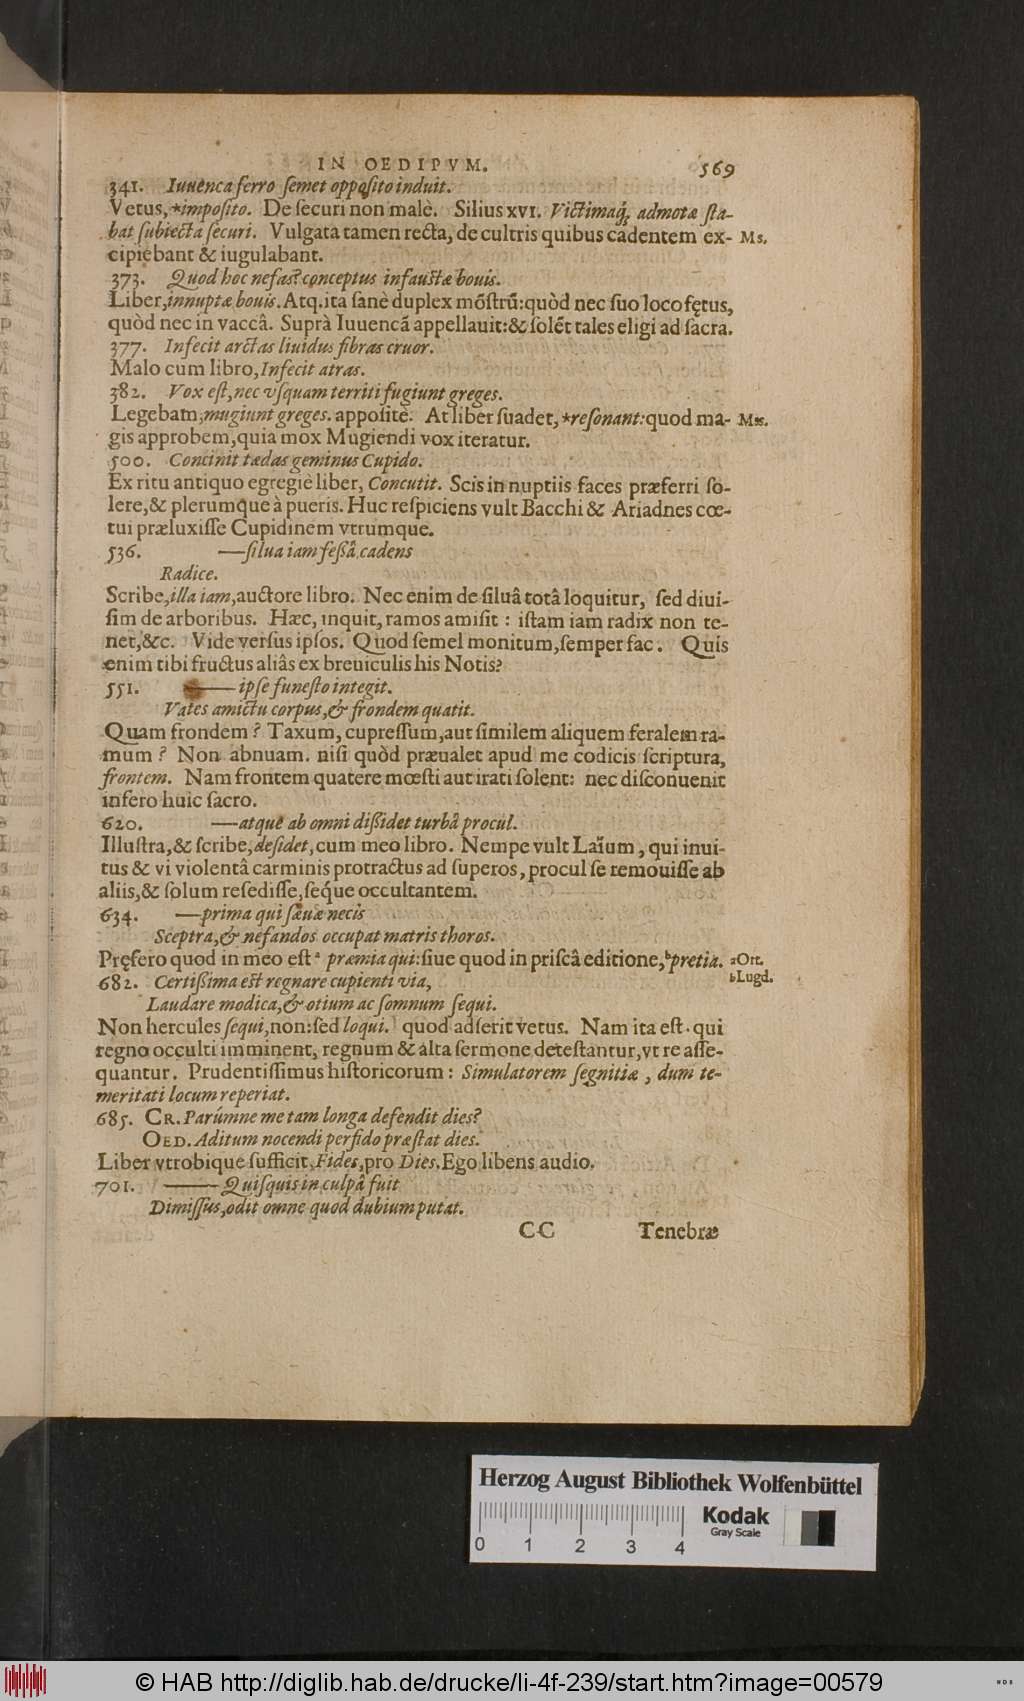 IN OEDIPVM. 569
341. Iuuenca ferro semet opposito induit.
Vetus, *imposito. De securi non malè. Silius XVI. Victimaq́; admotæ sta-
bat subiecta securi. Vulgata tamen recta, de cultris quibus cadentem ex- Ms.
cipiebant & iugulabant.
373. Quod hoc nefas? conceptus infaustæ bouis.
Liber, innuptæ bouis. Atq. ita sanè duplex mōstrū: quòd nec suo loco fętus,
quòd nec in vaccâ. Suprà Iuuencā appellauit: & solēt tales eligi ad sacra.
377. Infecit arctas liuidus fibras cruor.
Malo cum libro, Infecit atras.
382. Vox est, nec vsquam territi fugiunt greges.
Legebam, mugiunt greges. appositè. At liber suadet, *resonant: quod ma- Ms.
gis approbem, quia mox Mugiendi vox iteratur.
500. Concinit tædas geminus Cupido.
Ex ritu antiquo egregiè liber, Concutit. Scis in nuptiis faces præferri so-
lere, & plerumque à pueris. Huc respiciens vult Bacchi & Ariadnes cœ-
tui præluxisse Cupidinem vtrumque.
536. —silua iam fessâ cadens
Radice.
Scribe, illa iam, auctore libro. Nec enim de siluâ totâ loquitur, sed diui-
sim de arboribus. Hæc, inquit, ramos amisit : istam iam radix non te-
net, &c. Vide versus ipsos. Quod semel monitum, semper fac. Quis
enim tibi fructus aliâs ex breuiculis his Notis?
551. —ipse funesto integit.
Vates amictu corpus, & frondem quatit.
Quam frondem ? Taxum, cupressum, aut similem aliquem feralem ra-
mum ? Non abnuam. nisi quòd præualet apud me codicis scriptura,
frontem. Nam frontem quatere mœsti aut irati solent: nec disconuenit
infero huic sacro.
620. —atque ab omni dissidet turbâ procul.
Illustra, & scribe, desidet, cum meo libro. Nempe vult Laïum, qui inui-
tus & vi violentâ carminis protractus ad superos, procul se remouisse ab
aliis, & solum resedisse, seq́ue occultantem.
634. —prima qui sæuæ necis
Sceptra, & nefandos occupat matris thoros.
Pręfero quod in meo est ᵃ præmia qui: siue quod in priscâ editione, ᵇpretia. aOrt.
682. Certissima est regnare cupienti via, bLugd.
Laudare modica, & otium ac somnum sequi.
Non hercules sequi, non: sed loqui. quod adserit vetus. Nam ita est. qui
regno occulti imminent, regnum & alta sermone detestantur, vt re asse-
quantur. Prudentissimus historicorum : Simulatorem segnitiæ, dum te-
meritati locum reperiat.
685. CR. Parúmne me tam longa defendit dies?
OED. Aditum nocendi perfido præstat dies.
Liber vtrobique sufficit, Fides, pro Dies. Ego libens audio.
701. —Quisquis in culpâ fuit
Dimissus, odit omne quod dubium putat.
CC Tenebræ
Herzog August Bibliothek Wolfenbüttel
0 1 2 3 4
Kodak
Gray Scale
© HAB http://diglib.hab.de/drucke/li-4f-239/start.htm?image=00579